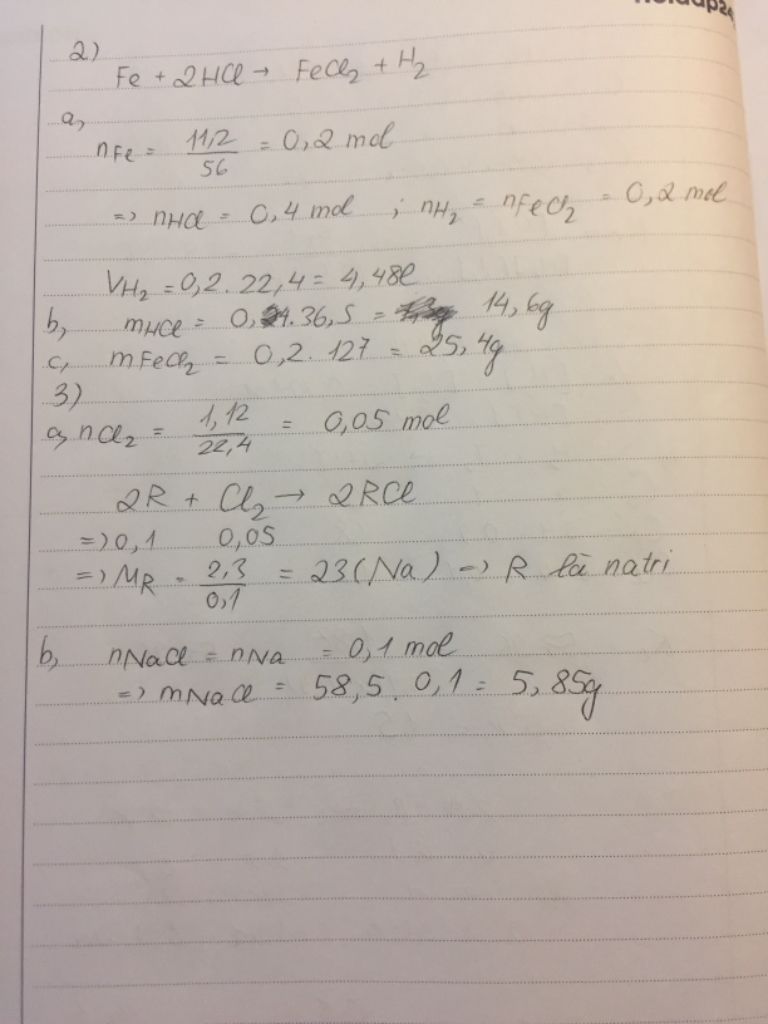 2)
Fe + 2HCl → FeCl₂ + H₂
a,
nFe = 11,2/56 = 0,2 mol
=> nHCl = 0,4 mol ; nH₂ = nFeCl₂ = 0,2 mol
VH₂ = 0,2 . 22,4 = 4,48l
b, mHCl = 0,4 . 36,5 = 14,6g
c, mFeCl₂ = 0,2 . 127 = 25,4g
3)
a, nCl₂ = 1,12/22,4 = 0,05 mol
2R + Cl₂ → 2RCl
=> 0,1 0,05
=> MR = 2,3/0,1 = 23 (Na) => R là natri
b, nNaCl = nNa = 0,1 mol
=> mNaCl = 58,5 . 0,1 = 5,85g